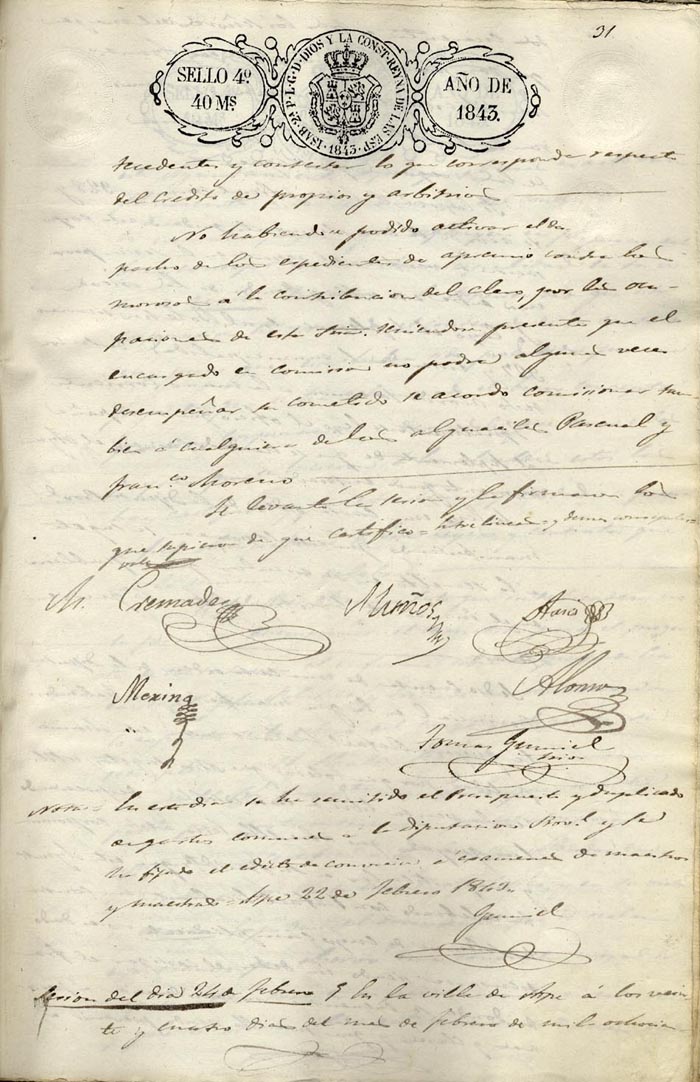 31
SELLO 4º
40 Mˢ
ISAB. 2ª P. L. G. D. DIOS Y LA CONST. REYNA DE LAS ESP.
1843.
AÑO DE
1843.
y contestar lo que corresponda respecto
del credito de propios y arbitrios
No habiendose podido activar el des
pacho de los espedientes de apremio contra los
morosos á la contribucion del clero, por las ocu-
paciones de este Teniendose presente que el
encargado en comision no podra algunas veces
desempeñar su cometido se acordo comisionar tam
bien á cualquiera de los alguaciles Pascual y
Franᶜᵒ Moreno
Se levantó la sesion y la firmaron los
que supieron de que certifico =
M. Cremades
Muños
Asis
Alonso
Mexina
Tomas Gumiel
Srio
Nota = En este dia se ha remitido el Presupuesto y duplicado
de gastos comunes á la diputacion Provl y se
ha fijado el edicto de á examenes de maestros
y maestras = Aspe 22 de febrero 1843
Gumiel
Sesion del dia 24 de febrero § En la villa de Aspe á los vein
te y cuatro dias del mes de febrero de mil ochocien